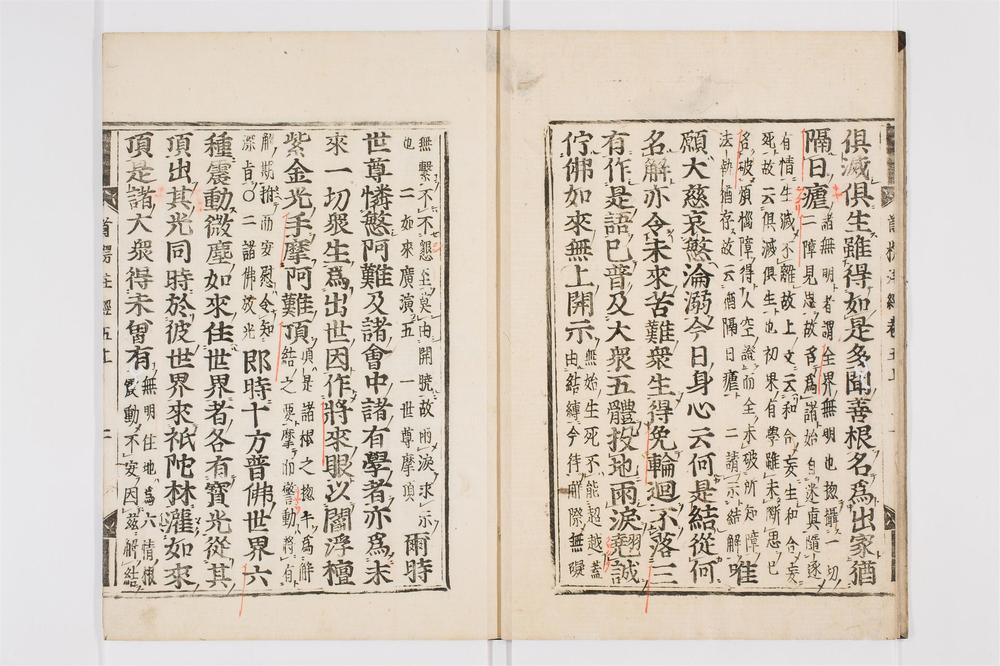 俱滅俱生雖得如是多聞善根名爲出家猶
隔日瘧
諸無明者謂全界無明也揔攝一切
二障見惑故名爲諸始自迷真隨逐
有情生滅不離故上文云和合妄生和合妄
死故云俱滅俱生也初果有學雖未斷思已
名破煩惱障得人空證而全未破所知障
法執猶存故云猶隔日瘧 二請示結解
唯
願大慈哀愍淪溺今日身心云何是結從何
名解亦令未來苦難衆生得免輪迴不落三
有作是語已普及大衆五體投地雨淚翹誠
佇佛如來無上開示
無始生死不能超越蓋
由結縛今待解際無礙
無繫不不懇至莫由開曉故雨淚求示
也 二如來廣演五 世尊摩頂
爾時
世尊憐愍阿難及諸會中諸有學者亦爲未
來一切衆生爲出世因作將來眼以閻浮檀
紫金光手摩阿難頂
頂是諸根之揔爲解
結之要摩而警動將有
解期推而安慰令知
深旨〇二諸佛放光
即時十方普佛世界六
種震動微塵如來住世界者各有寶光從其
頂出其光同時於彼世界來祇陀林灌如來
頂是諸大衆得未曾有
無明住地爲六情根
震動不安因茲解結
首楞註經五上 二